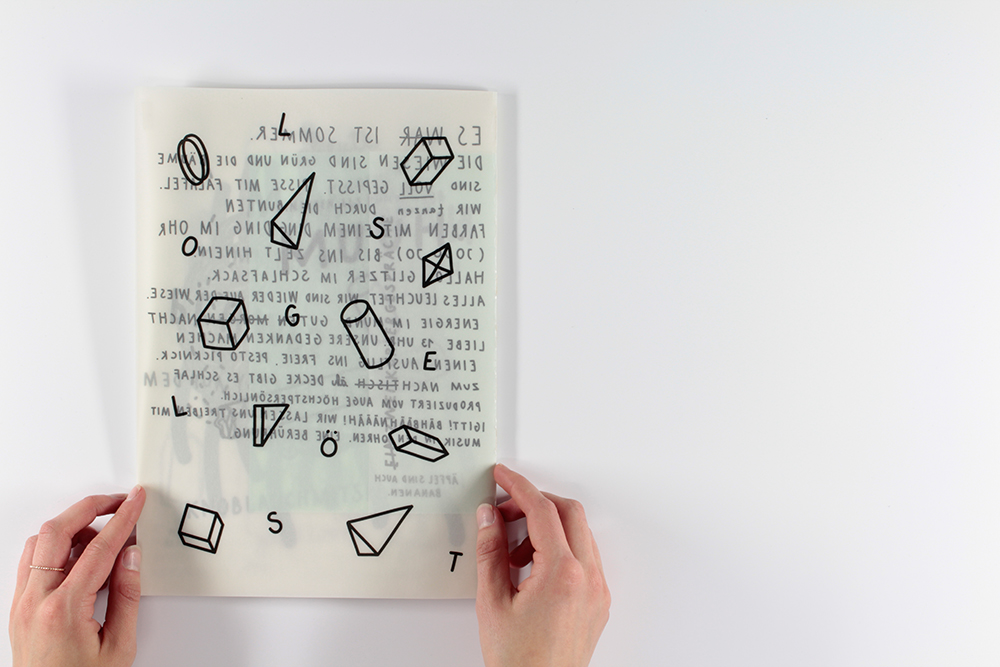 L
O S
G E
L Ö
S T
ES WAR IST SOMMER.
DIE WIESEN SIND GRÜN UND DIE BÄUME
SIND VOLL GEPISST. MIT FALAFEL.
WIR tanzen DURCH DIE BUNTEN
FARBEN MIT EINEM DING DING IM OHR
BIS INS ZELT HINEIN.
HALLO GLITZER IM SCHLAFSACK.
ALLES LEUCHTET. WIR SIND WIEDER AUF DER WIESE.
ENERGIE IM MUND. GUTEN MORGEN NACHT
LIEBE 13 UHR. UNSERE GEDANKEN MACHEN
EINEN AUSFLUG INS FREIE. PESTO PICKNICK.
ZUM NACHTISCH DECKE GIBT ES SCHLAF
PRODUZIERT VOM AUGE HÖCHSTPERSÖNLICH.
WIR LASSEN UNS TREIBEN MIT
MUSIK IN DEN OHREN. EINE BERÜHRUNG.
ÄPFEL SIND AUCH
BANANEN.